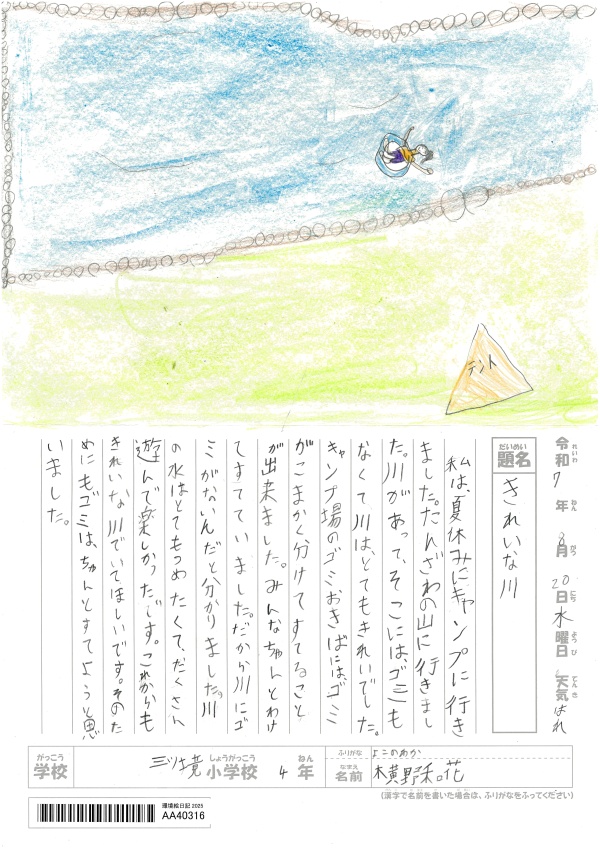 テント
令和7年8月20日水曜日天気はれ
れいわ ねん がつ にち ようび てんき
だいめい
題名 きれいな川
私は、夏休みにキャンプに行き
ました。たんざわの山に行きまし
た。川があって、そこにはゴミも
なくて川は、とてもきれいでした。
キャンプ場のゴミおきばにはゴミ
がこまかく分けてすてること
が出来ました。みんなちゃんとわけ
てすてていました。だから川にゴ
ミがないんだと分かりました。川
の水はとてもつめたくて、たくさん
遊んで楽しかったです。これからも
きれいな川でいてほしいです。そのた
めにもゴミは、ちゃんとすてようと思
いました。
がっこう しょうがっこう ねん
学校 三ツ境小学校 4年
ふりがな よこのわか
なまえ
名前 横野和花
(漢字で名前を書いた場合は、ふりがなをふってください)
環境絵日記 2025
AA40316